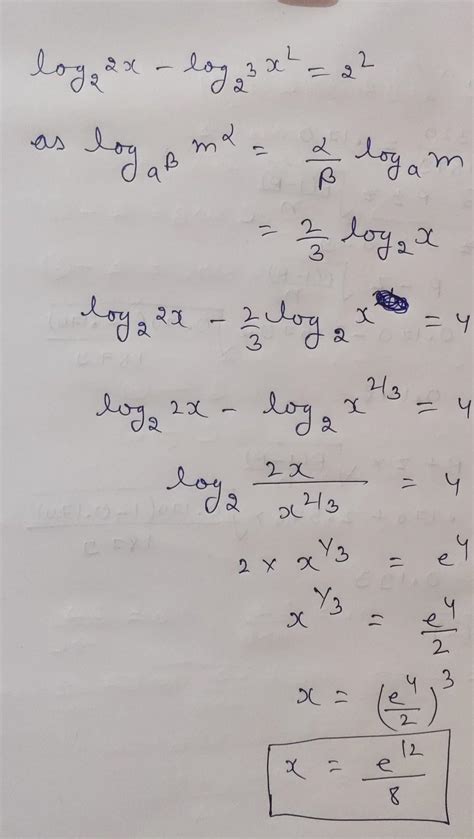 log₂ 2x − log_{2³} x² = 2²
as log_{a^β} m^α = α/β logₐ m
= 2/3 log₂ x
log₂ 2x − 2/3 log₂ x = 4
log₂ 2x − log₂ x^{2/3} = 4
log₂ 2x/x^{2/3} = 4
2 × x^{1/3} = e⁴
x^{1/3} = e⁴/2
x = (e⁴/2)³
x = e¹²/8